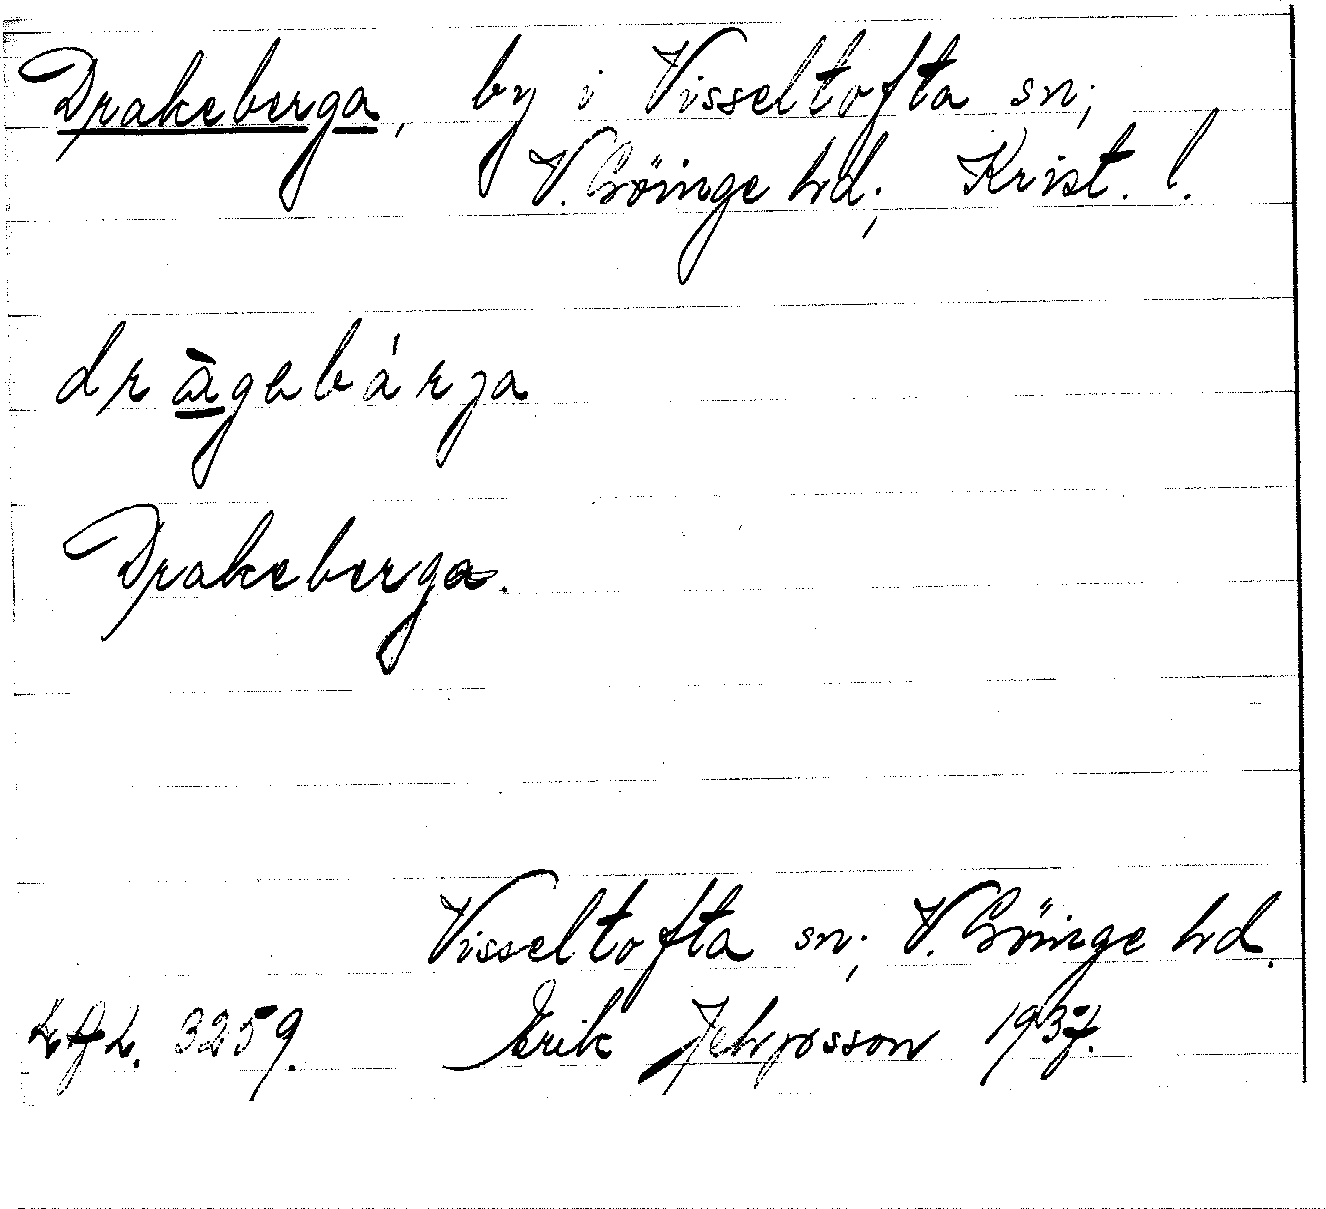 Drakeberga, by i Visseltofta sn;
V. Göinge hd; Krist. l.
dràgebárja
Drakeberga.
Visseltofta sn; V. Göinge hd.
3259. Erik Jeppsson 1937.